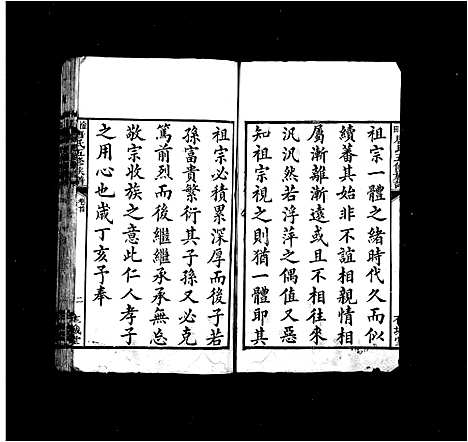 祖宗一體之緒時代久而似
續蕃其扮非不誼相親情相
屬漸離漸遠或且不相往來
汎汎然若浮萍之偶值又惡
知祖宗視之則猶一體即其
祖宗必積累深厚而後子若
孫富貴繁衍其子孫又必克
篤前烈而後繼繼承承無忘
敬宗收族之意此仁人孝子
之用心也歲丁亥子奉
氏五修族譜
卷首
二